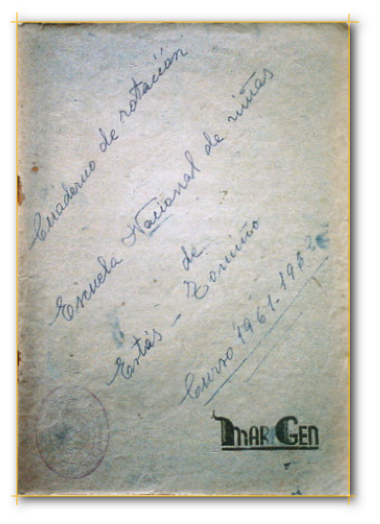 Cuaderno de rotación
Escuela Nacional de niñas
de
Estás - Tomiño
Curso 1961-1962
IMAR GEN